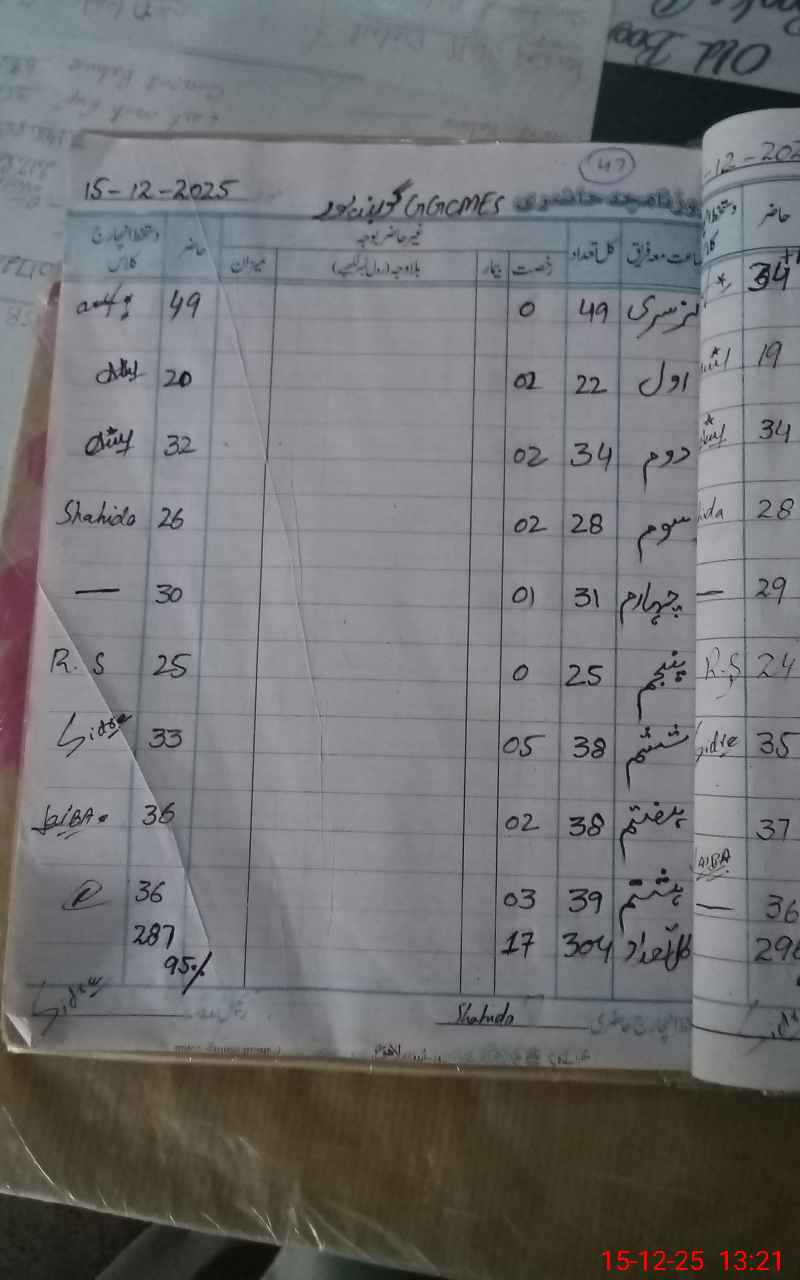 Old Book
47
روزنامچہ حاضری GGCMES گوبند پور 15-12-2025
جماعت معہ فریق کل تعداد غیر حاضر بوجہ حاضر دستخط انچارج کلاس
رخصت بیمار بلاوجہ (رول نمبر لکھیے) میزان
نرسری 49 0 49
اول 22 02 20
دوم 34 02 32
سوم 28 02 26 Shahida
چہارم 31 01 30 —
پنجم 25 0 25 R.S
ششم 38 05 33 Sidra
ہفتم 38 02 36 LAIBA
ہشتم 39 03 36
کل تعداد 304 17 287
95%
دستخط انچارج حاضری Shahida Sidra
-12-202
حاضر
34
19
34
28
— 29
R.S 24
Sidra 35
37
LAIBA
— 36
296
15-12-25 13:21